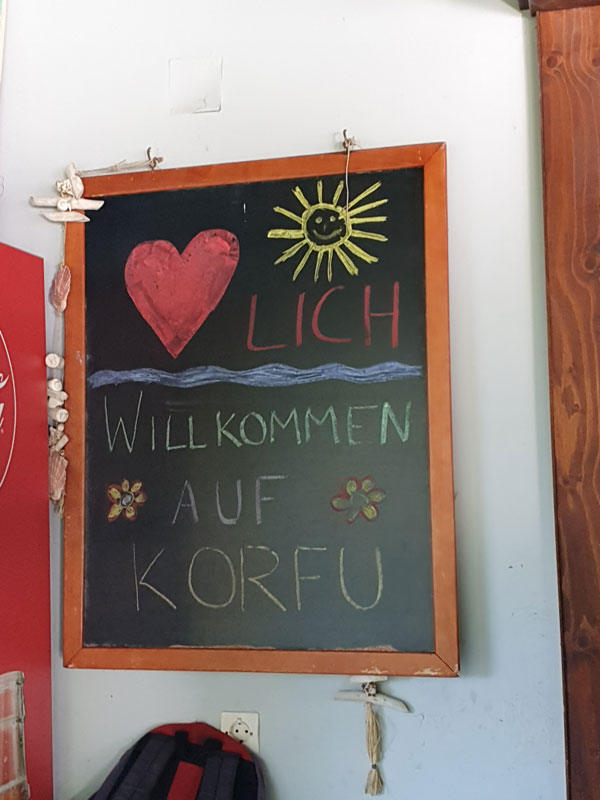 LICH
WILLKOMMEN
AUF
KORFU